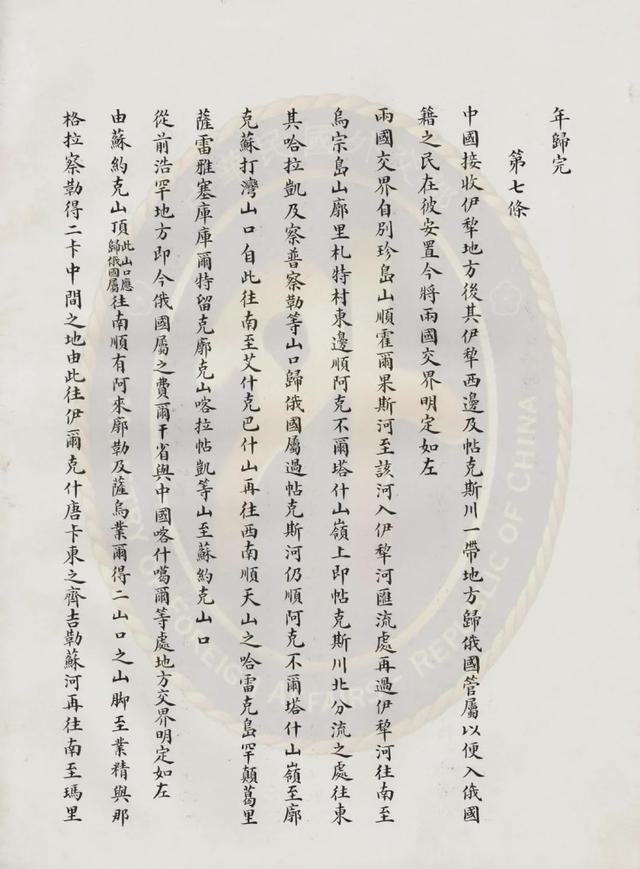 年歸完
第七條
中國接收伊犂地方後其伊犂西邊及帖克斯川一帶地方歸俄國管屬以便入俄國
籍之民在彼安置今將兩國交界明定如左
兩國交界自別珍島山順霍爾果斯河至該河入伊犂河匯流處再過伊犂河往南至
烏宗島山廓里札特村東邊順阿克不爾塔什山嶺上即帖克斯川北分流之處往東
其哈拉凱及察普察勒等山口歸俄國屬過帖克斯河仍順阿克不爾塔什山嶺至廓
克蘇打灣山口自此往南至艾什克巴什山再往西南順天山之哈雷克島罕顛葛里
薩雷雅塞庫庫爾特留克廓克山喀拉帖凱等山至蘇約克山口
從前浩罕地方即今俄國屬之費爾干省與中國喀什噶爾等處地方交界明定如左
由蘇約克山頂此山口應歸俄國屬往南順有阿來廓勒及薩烏業爾得二山口之山脚至業精與那
格拉察勒得二卡中間之地由此往伊爾克什唐卡東之齊吉勒蘇河再往南至瑪里
MINISTRY OF FOREIGN AFFAIRS REPUBLIC OF CHINA